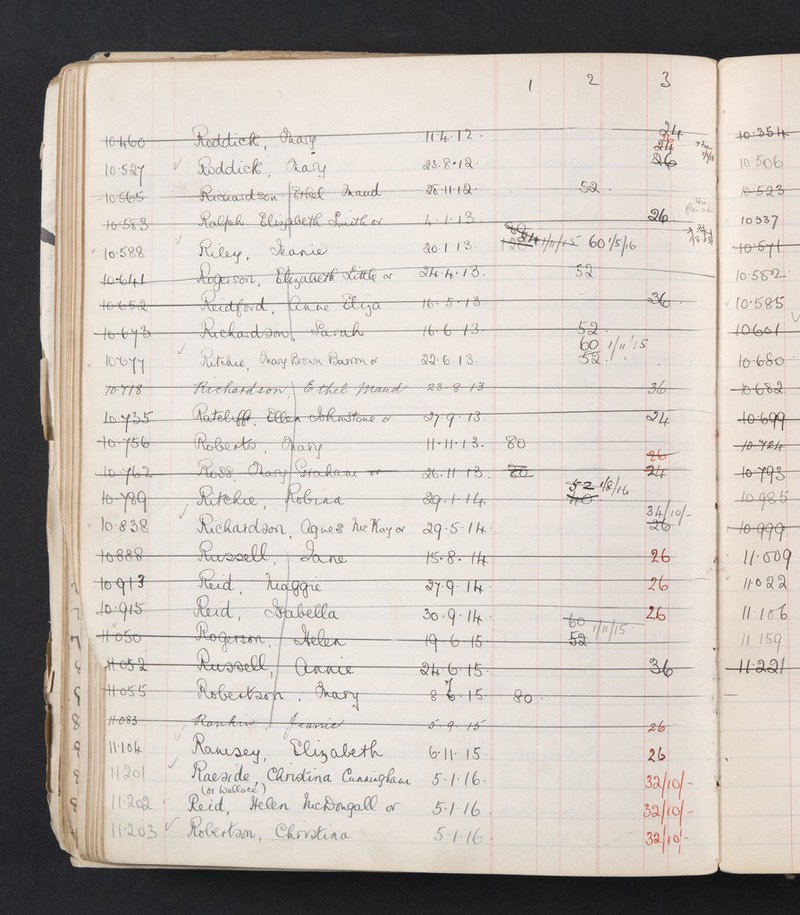 1 2 3
24
10460 Roddick, Mary 11.4.12. 24
10.527 √ Roddick, Mary 23.8.12. 26
10565 Richardson, Ethel Maud 28.11.12. 52.
10583 Ralph Elizabeth Smith or 4.1.13. 26.
10.588 √ Riley, Jeanie 20.1.13. 1/11/15 60 1/5/16
10641 Rogerson, Elizabeth Little or 24.4.13. 52
10652 Reidford, Anne Eliza 16.5.13. 36.
10673 Richardson, Sarah 16.6.13 52.
60 1/11/15
10677 √ Ritchie, Mary Brown Barron or 22.6.13. 52.
10718 Richardson, Ethel Maud 23.8.13 36
10735 Ratcliff, Ellen Johnstone or 27.9.13. 24
10756 Roberts, Mary 11.11.13. 80
26
10762 Ross, Mary Graham or 26.11.13. 80 24
52 1/8/16
10789 Ritchie, Robina 29.1.14. 40
34/10/-
10.838 √ Richardson, Agnes McKay or 29.5.14. 26
10888 Russell, Jane 15.8.14 26
10913 Reid, Maggie 27.9.14. 26
10.915 Reid, Isabella 30.9.14. 26
60 1/11/15
11050 Rogerson, Helen 19.6.15 52
11052 Russell, Annie 24.6.15. 36
7
11055 Robertson, Mary 8.6.15. 80.
11083 Rankin, Jeanie 5.9.15 26
11.104 √ Ramsey, Elizabeth 6.11.15. 26
11201 √ Raeside, Christina Cunningham 5.1.16. 32/10/-
(or Wallace)
11.202 Reid, Helen McDongall or 5.1.16. 32/10/-
11203 √ Robertson, Christina 5.1.16. 32/10/-
10.354
10.506
10523
10537
10.571
10.582.
10.585
10601
10.680
10.682
10.699
10.724
10.793
10.985
10.999
11.009
11.022
11.106
11 159
11.221